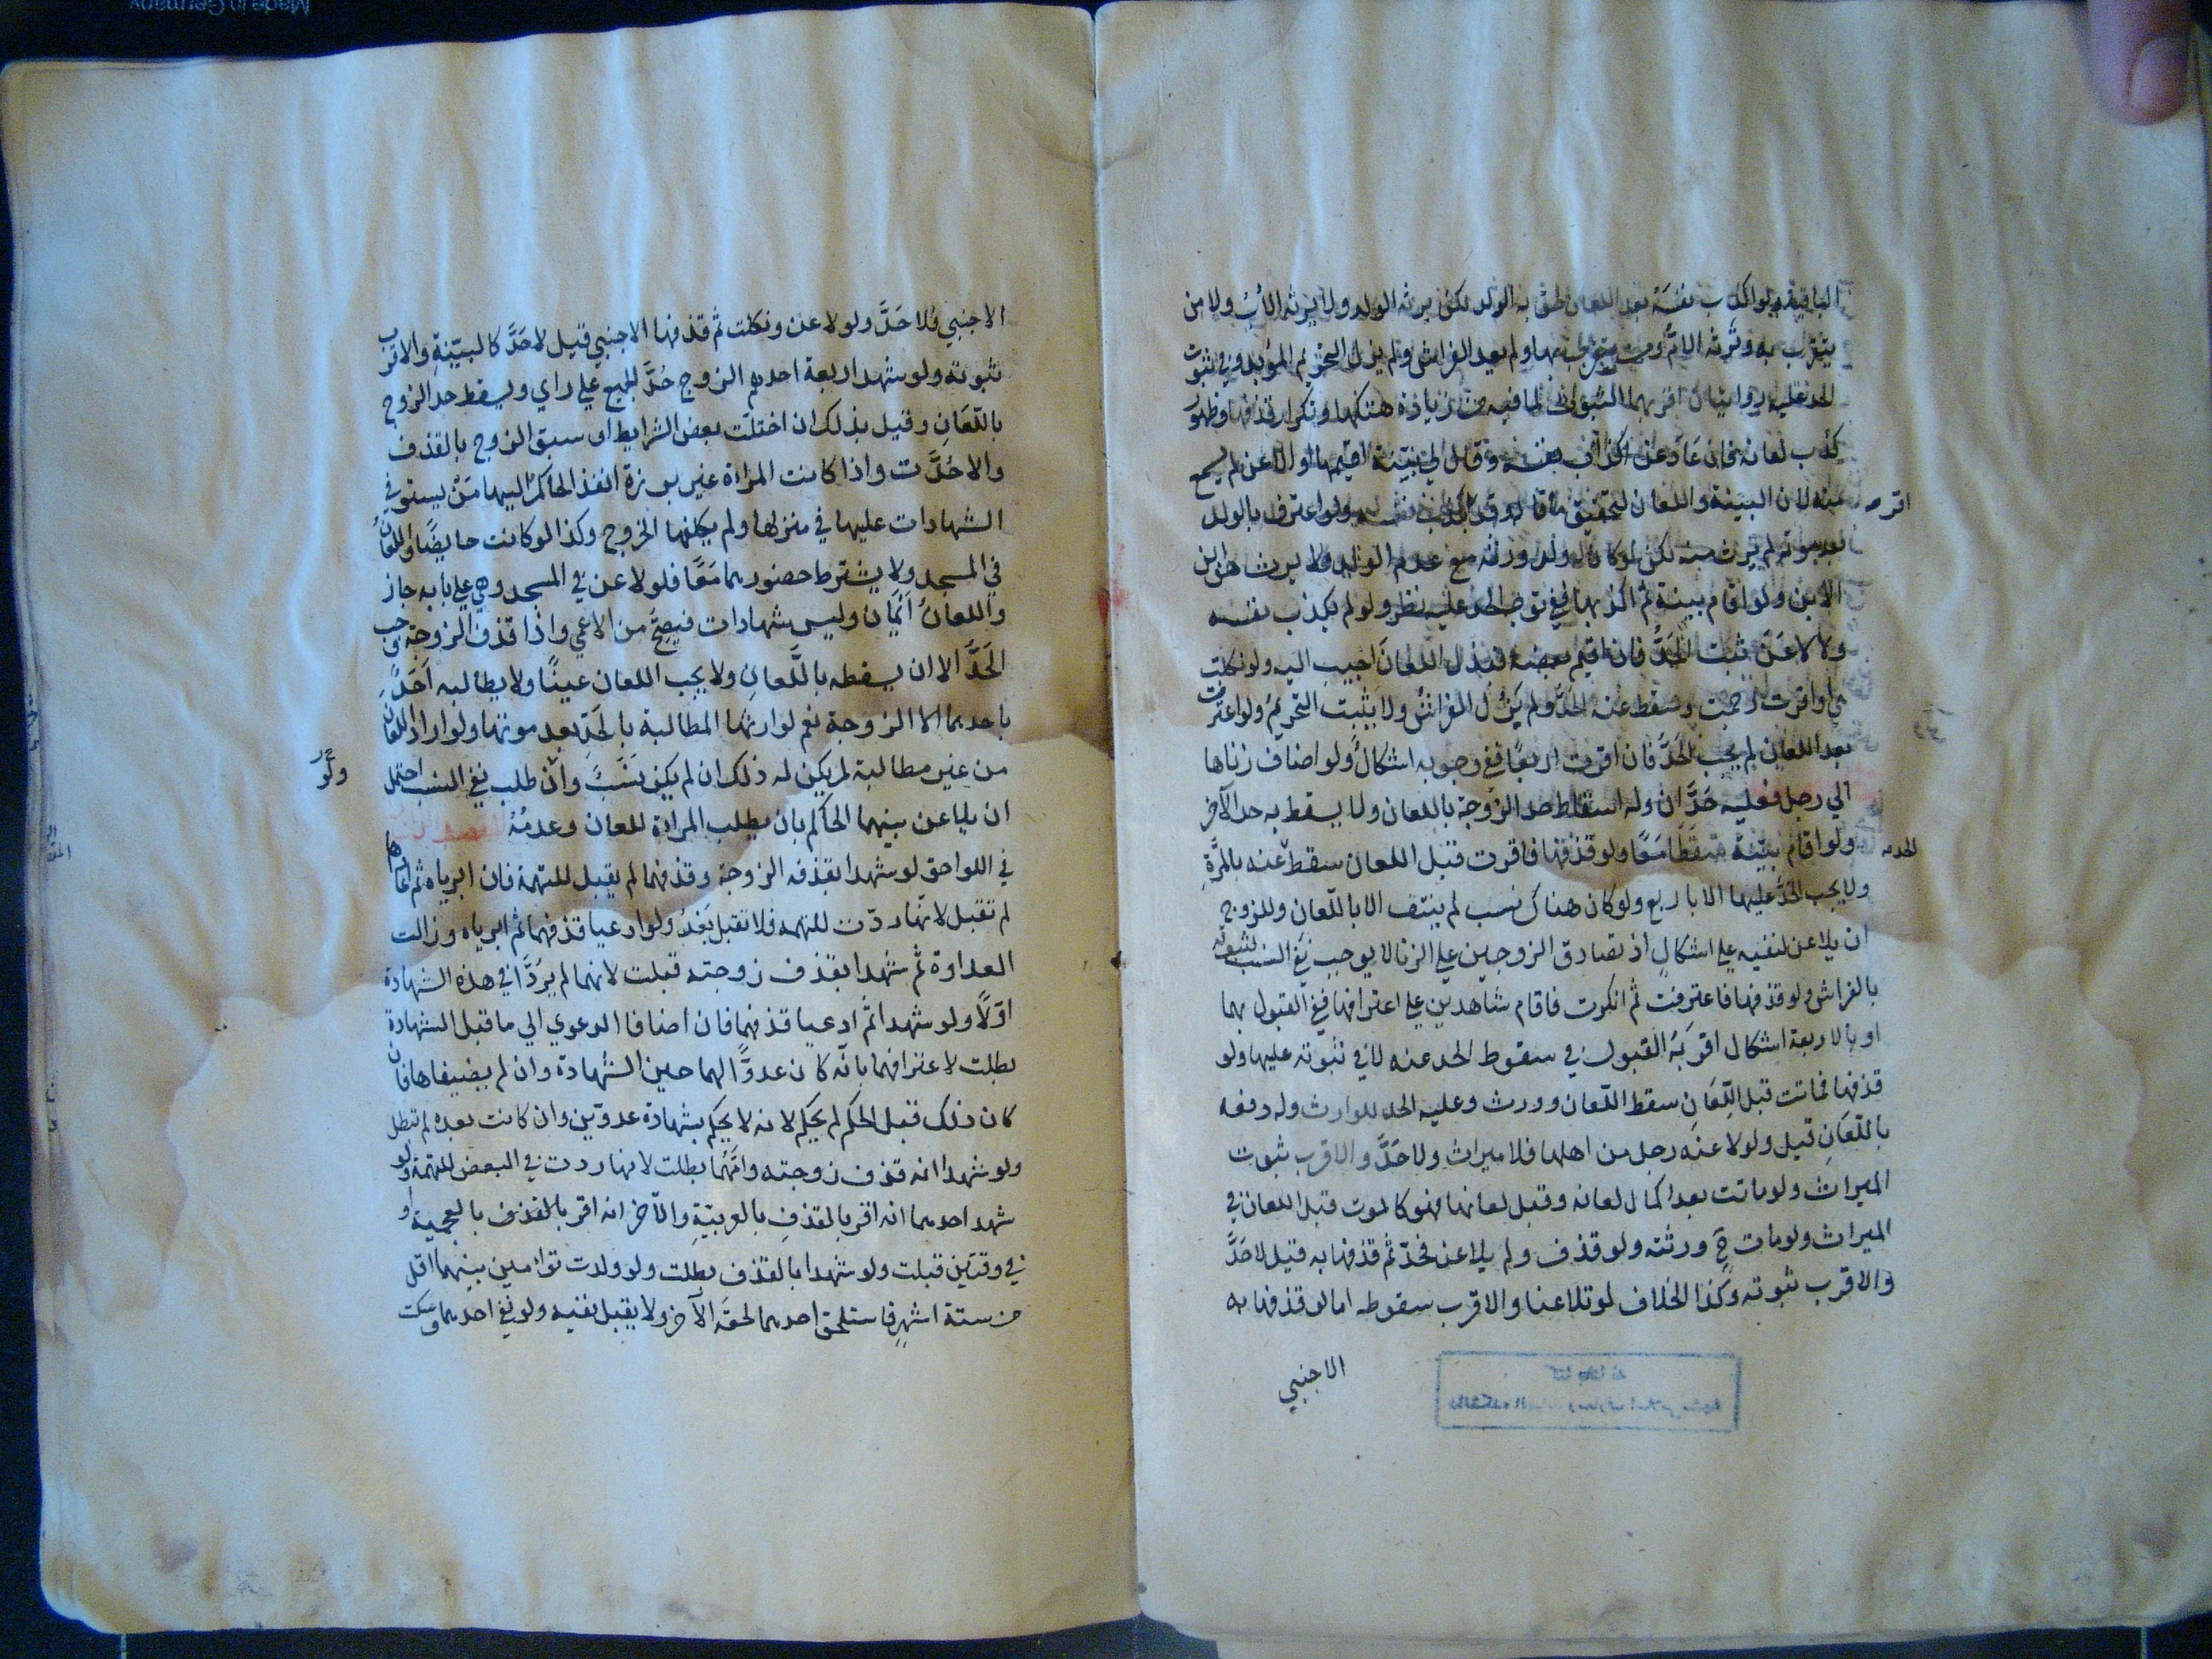 الباقية ولو اكذب نفسَهُ بعد اللعان لحق به الولد لكن يرثه الولد ولا يرثه الأبُ ولا من
يتقرّب به وتَرثه الامُّ ومن يتقرب بها ولم يعد الفراش ولم يزل التحريم المؤبد وفي ثبوت
الحد عليه روايتان اقربهما الثبوت لما فيه من زيادة هتكها وتكرار قذفها وظهور
كذب لعانه فان عاد عن اكذاب نفسه وقال لي بيّنة اقيمها او الاعن لم يسمع
منه لان البينة واللعان لتحقيق ما قاله وقد اكذب نفسه ولو اعترف بالولد
بعد موته لم يرث منه لكن لو كان له ولد ورثه مع عدم الولد ولا يرث هو ابن
الابن ولو اقام بينة ثم اكذبها ففي توجه الحد عليه نظر ولو لم يكذب نفسه
ولا لاعَنَ ثبت الحَدُّ فان اقيم بعضه فبذل اللعان اجيب اليه ولو نكلت
هي او اقرت رجمت وسقط عنه الحدُّ ولم يَزُل الفراشُ ولا يَثبت التحريمُ ولو اعترفت
بعد اللعان لم يجب الحَدُّ فان اقرت اربعًا ففي وجوبه اشكالٌ ولو اضاف زناها
الي رجل فعليه حَدَّان وله اسقاط حد الزوجة باللعان ولا يسقط به حد الآخر
ولو اقام بيّنة سَقَطَا مَعًا ولو قذفها فاقرت قبل اللعان سقط عنه بالمرَّةِ
ولا يجب الحدُّ عليها الا باربع ولو كان هناك نسب لم ينتف الا باللّعان وللزوج
ان يلاعن لنفيه علي اشكالٍ اذ تصادق الزوجين علي الزنا لا يوجب نفي النسب لثبوته
بالفراش ولو قذفها فاعترفت ثم انكرت فاقام شاهدين علي اعترافها ففي القبول بهما
او بالاربعة اشكال اقربَهُ القبول في سقوط الحد عنه لا في ثبوته عليها ولو
قذفها فماتت قبل اللِّعَانِ سقط اللّعان وورث وعليه الحد للوارث وله دفعه
باللّعَانِ قيل ولو لاعنه رجل من اهلها فلا ميراث ولا حَدَّ والاقرب ثبوت
الميراث ولو ماتت بعد اكمال لعانه وقبل لعانها فهو كالموت قبل اللعان في
الميراث ولو مات ح ورثته ولو قذف ولم يلاعن فحُدّ ثم قذفها به قيل لا حَدَّ
والاقرب ثبوته وكذا الخلاف لو تلاعنا والاقرب سقوطه اما لو قذفها به
الاجنبي
الاجنبي فلا حَدَّ ولو لاعن ونكلت ثم قذفها الاجنبي قيل لا حَدَّ كالبيّنةِ والاقرب
ثبوته ولو شهد اربعة احدهم الزوج حُدَّ الجميع علي راي ويسقط حد الزوج
باللّعَانِ وقيل بذلك ان اختلّت بعض الشرايط او سبق الزوج بالقذف
والا حُدَّت واذا كانت المراة غير برزة انفذ الحاكمُ اليها مَنْ يستوفي
الشهادات عليها في منزلها ولم يكلفها الخروج وكذا لو كانت حايضًا واللعانُ
في المسجد ولا يشترط حضورهما مَعًا فلو لاعن في المسجد وهي علي بابه جاز
واللعانُ اَيْمَان وليس شهادات فيصحَّ من الاعمي واذا قذف الزوجة وجب
الحَدَّ الا ان يسقطه باللَّعانِ ولا يجب اللعان عينًا ولا يطالبه اَحَدٌ
باحدهما الا الزوجة نعم لوارثها المطالبة بالحَدِّ بعد موتها ولو اراد اللعان
من غير مطالبة لم يكن له ذلك ان لم يكن نَسَبٌ وان طلب نفي النسب احتمل
ان يلاعن بينهما الحاكم بان يطلب المراة للعان وعدمُهُ
في اللواحق لو شهدا بقذفه الزوجة وقذفهما لم يقبل للتهمة فان ابرياه ثم اعاداها
لم تقبل لانّها ردّت للتهمه فلا تقبل بَعْدُ ولو ادعيا قذفهما ثم ابرياه وزالت
العداوة ثم شهدا بقذف زوجته قبلت لانهما لم يَرُدَّا في هذه الشهادة
اوّلاً ولو شهدا ثم ادعيا قذفهما فان اضافا الدعوي الي ما قبل الشهادة
بطلت لاعترافهما بانّه كان عدوًّا لهما حين الشهادة وان لم يضيفاها فان
كان ذلك قبل الحكم لم يحكم لانه لا يحكم بشهادة عدوّين وان كانت بعده لم تبطل
ولو شهدا انه قذف زوجته وامَّهُما بطلت لانها ردت في البعض للتهمة ولو
شهد احدهما انه اقر بالقذفِ بالعربيّةِ والآخر انه اقر بالقذف بالعجمية او
في وقتَين قبلت ولو شهدا بالقذف بطلت ولو ولدت توامين بينهما اقل
من ستة اشهرٍ فاستلحق احدهما لحقَه الآخر ولا يقبل نفيه ولو نفي احدهما وسكت